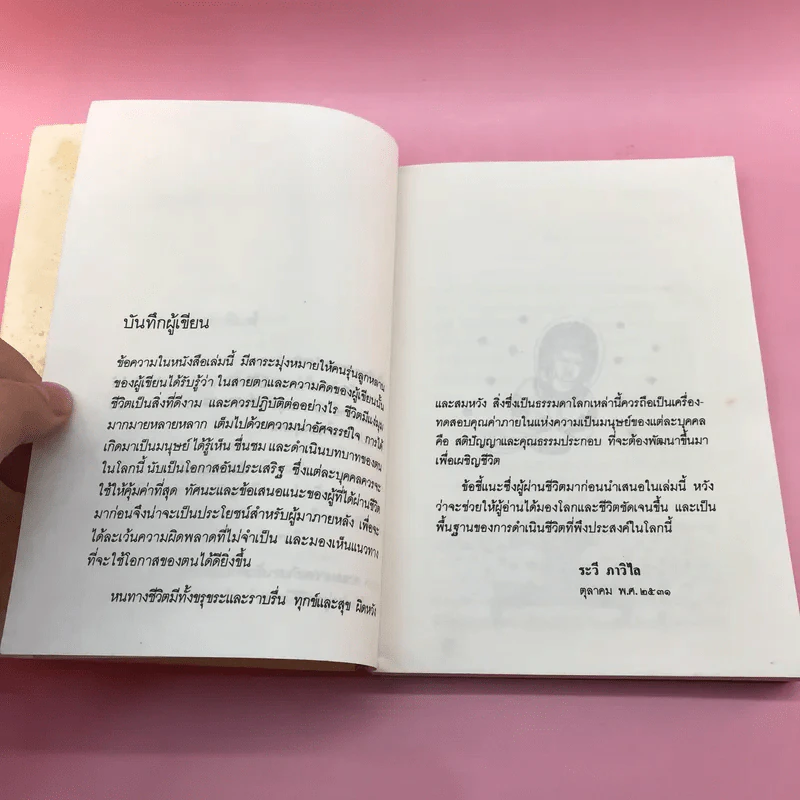 บันทึกผู้เขียน
ข้อความในหนังสือเล่มนี้ มีสาระมุ่งหมายให้คนรุ่นลูกหลาน
ของผู้เขียนได้รับรู้ว่า ในสายตาและความคิดของผู้เขียนนั้น
ชีวิตเป็นสิ่งที่ดีงาม และควรปฏิบัติต่ออย่างไร ชีวิตมีแง่มุม
มากมายหลายหลาก เต็มไปด้วยความน่าอัศจรรย์ใจ การได้
เกิดมาเป็นมนุษย์ ได้รู้เห็น ชื่นชม และดำเนินบทบาทของตน
ในโลกนี้ นับเป็นโอกาสอันประเสริฐ ซึ่งแต่ละบุคคลควรจะ
ใช้ให้คุ้มค่าที่สุด ทัศนะและข้อเสนอแนะของผู้ที่ได้ผ่านชีวิต
มาก่อนจึงน่าจะเป็นประโยชน์สำหรับผู้มาภายหลัง เพื่อจะ
ได้ละเว้นความผิดพลาดที่ไม่จำเป็น และมองเห็นแนวทาง
ที่จะใช้โอกาสของตนได้ดียิ่งขึ้น
หนทางชีวิตมีทั้งขรุขระและราบรื่น ทุกข์และสุข ผิดหวัง
และสมหวัง สิ่งซึ่งเป็นธรรมดาโลกเหล่านี้ควรถือเป็นเครื่อง-
ทดสอบคุณค่าภายในแห่งความเป็นมนุษย์ของแต่ละบุคคล
คือ สติปัญญาและคุณธรรมประกอบ ที่จะต้องพัฒนาขึ้นมา
เพื่อเผชิญชีวิต
ข้อชี้แนะซึ่งผู้ผ่านชีวิตมาก่อนนำเสนอในเล่มนี้ หวัง
ว่าจะช่วยให้ผู้อ่านได้มองโลกและชีวิตชัดเจนขึ้น และเป็น
พื้นฐานของการดำเนินชีวิตที่พึงประสงค์ในโลกนี้
ระวี ภาวิไล
ตุลาคม พ.ศ.๒๕๓๑